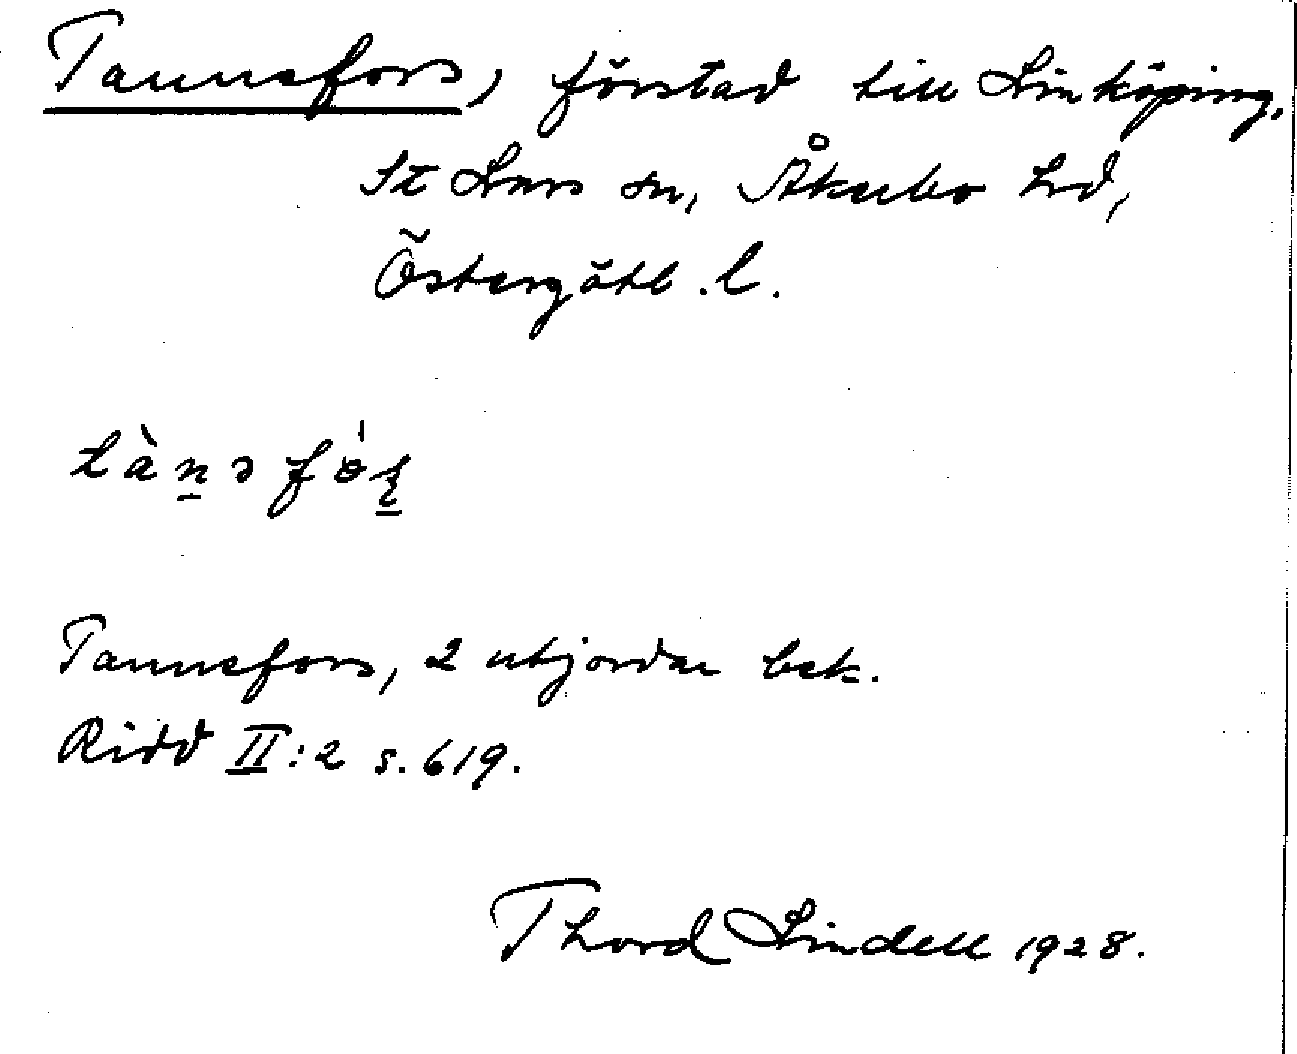 Tannefors, förstad till Linköping,
St Lars sn, Åkerbo hd,
Östergötl. l.
tàn̲əfó̵ş̲
Tannefors, 2 utjordar bek.
Ridd II:2 s. 619.
Thord Lindell 1928.